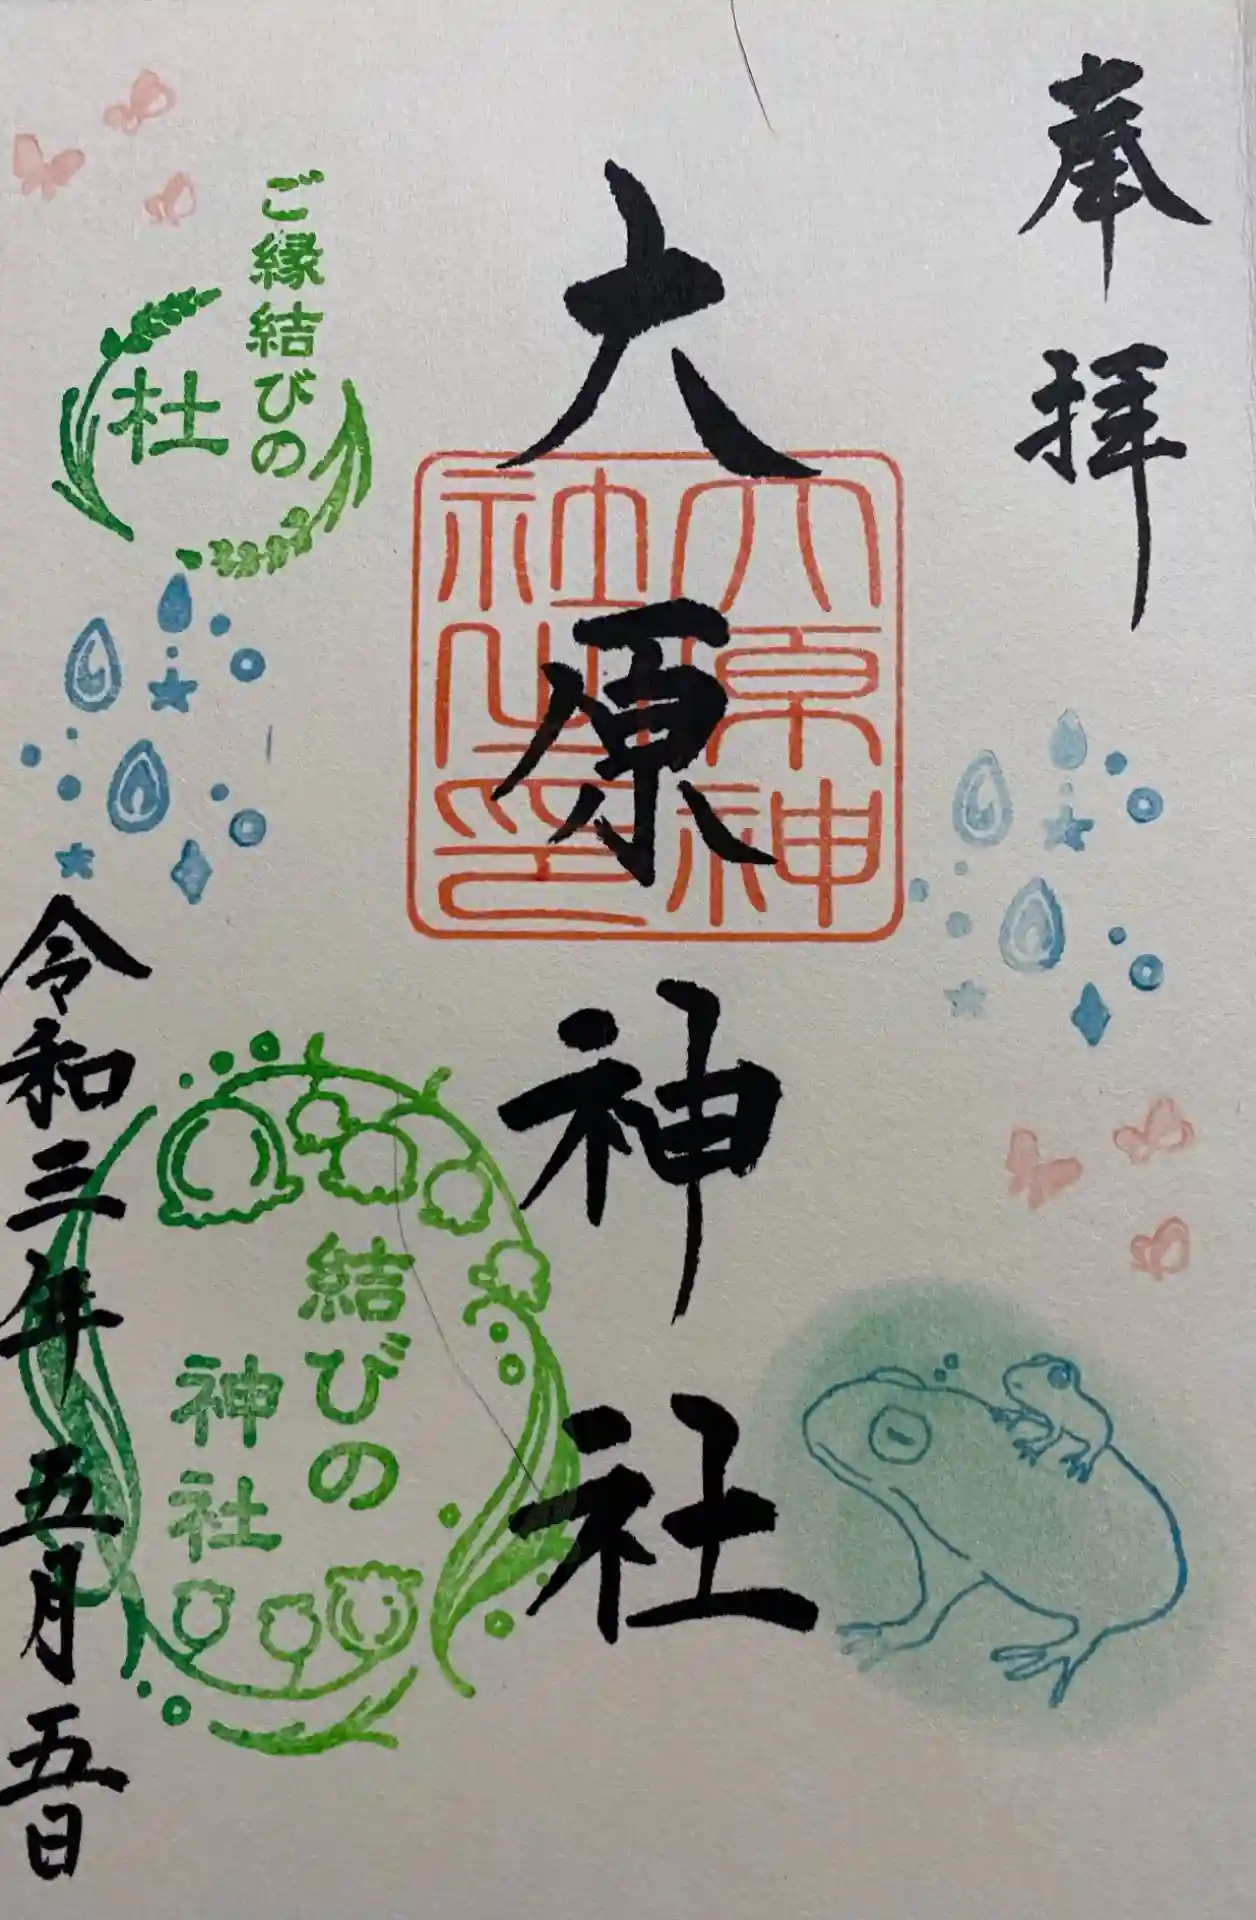 奉拝
大原神社
大原神社之印
ご縁結びの
杜
結びの
神社
令和三年五月五日